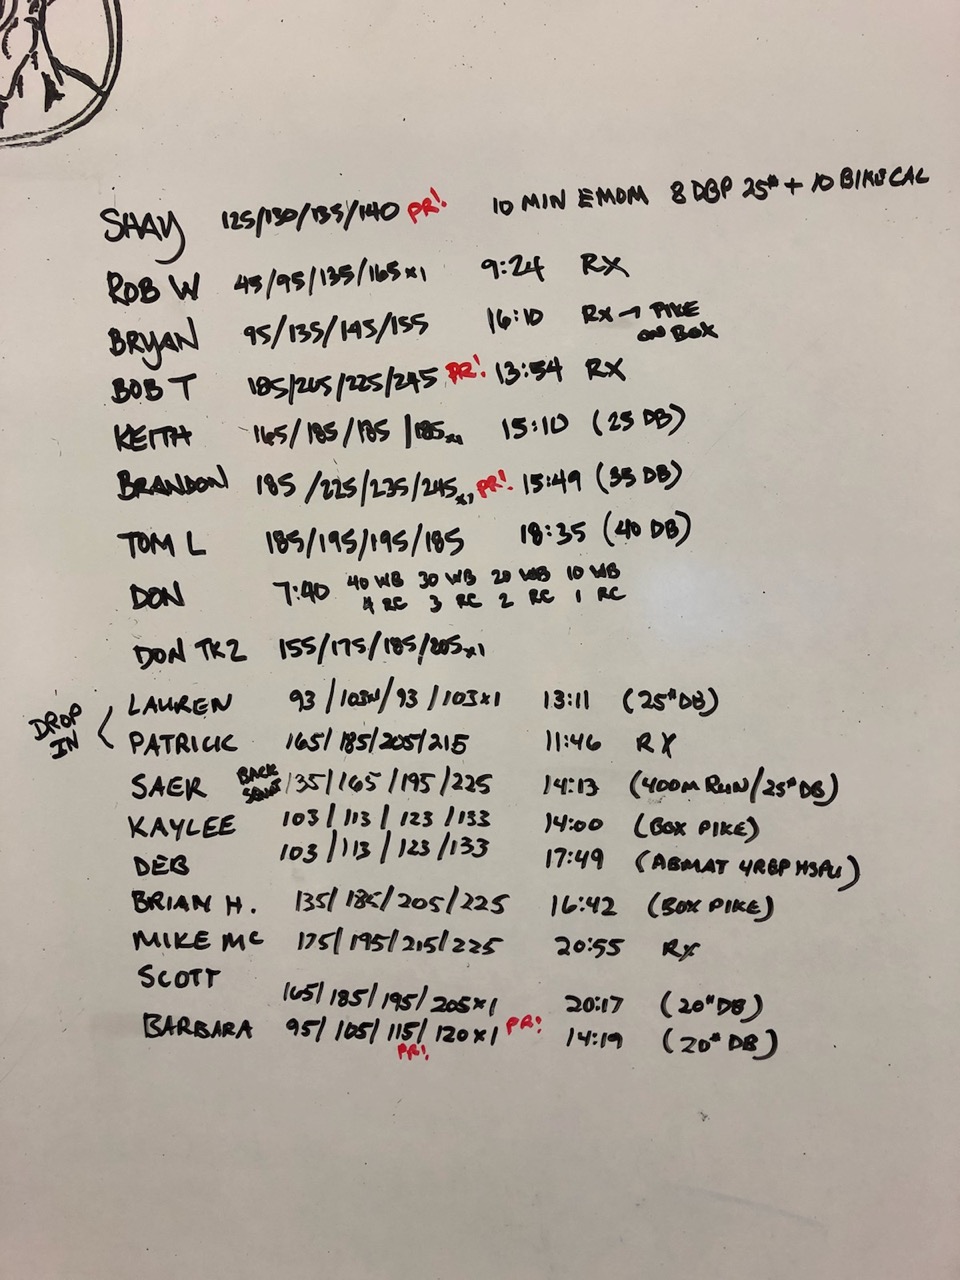 SHAY 125/130/135/140 PR! 10 MIN EMOM 8 DBP 25# + 10 BIKE CAL
ROB W 45/95/135/165x1 9:24 RX
BRYAN 95/135/145/155 16:10 RX → PIKE
ON BOX
BOB T 185/205/225/245 PR! 13:54 RX
KEITH 165/185/185/185x1 15:10 (25 DB)
BRANDON 185/225/235/245x1 PR! 15:49 (35 DB)
TOM L 185/195/195/185 18:35 (40 DB)
DON 7:40 40 WB 30 WB 20 WB 10 WB
4 RC 3 RC 2 RC 1 RC
DON TK2 155/175/185/205x1
DROP
IN
LAUREN 93/103x1/93/103x1 13:11 (25# DB)
PATRICK 165/185/205/215 11:46 RX
SAER BACK
SQUAT 135/165/195/225 14:13 (400M RUN/25# DB)
KAYLEE 103/113/123/133 14:00 (BOX PIKE)
DEB 103/113/123/133 17:49 (ABMAT 4REP HSPU)
BRIAN H. 135/185/205/225 16:42 (BOX PIKE)
MIKE MC 175/195/215/225 20:55 RX
SCOTT 165/185/195/205x1 20:17 (20# DB)
BARBARA 95/105/115/120x1 PR! 14:19 (20# DB)
PR!